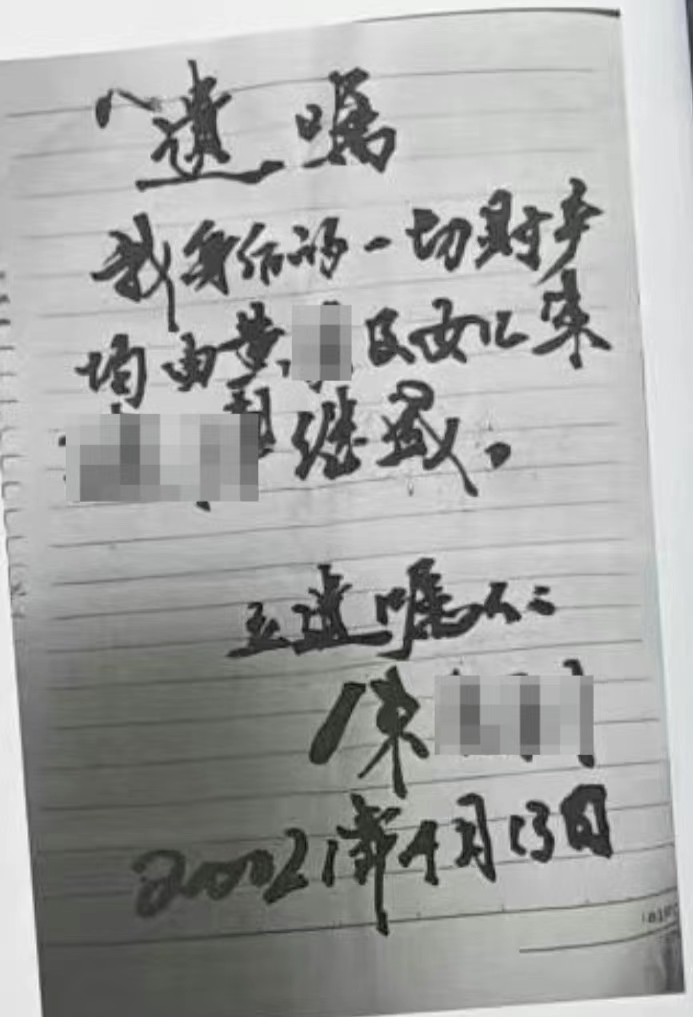 遗嘱
我身后的一切财产
均由黄 及女儿宋
继承。
立遗嘱人:
陈
20021年4月13日